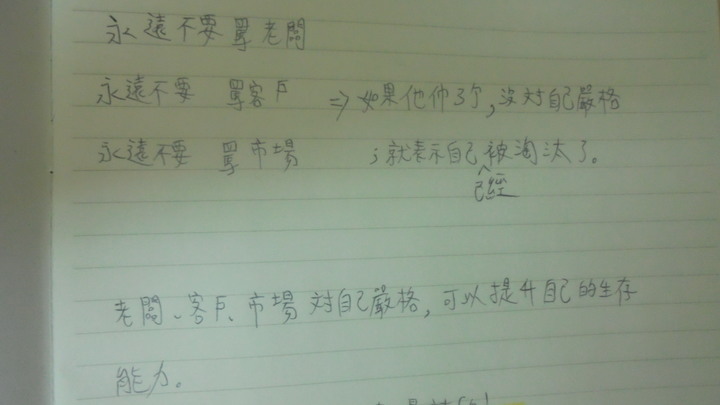 永遠不要 罵老闆
永遠不要 罵客戶 ⇒ 如果他们3个,沒对自己嚴格
永遠不要 罵市場 ;就表示自己被淘汰了。
已經
老闆、客戶、市場 对自己嚴格,可以提升自己的生存
能力。